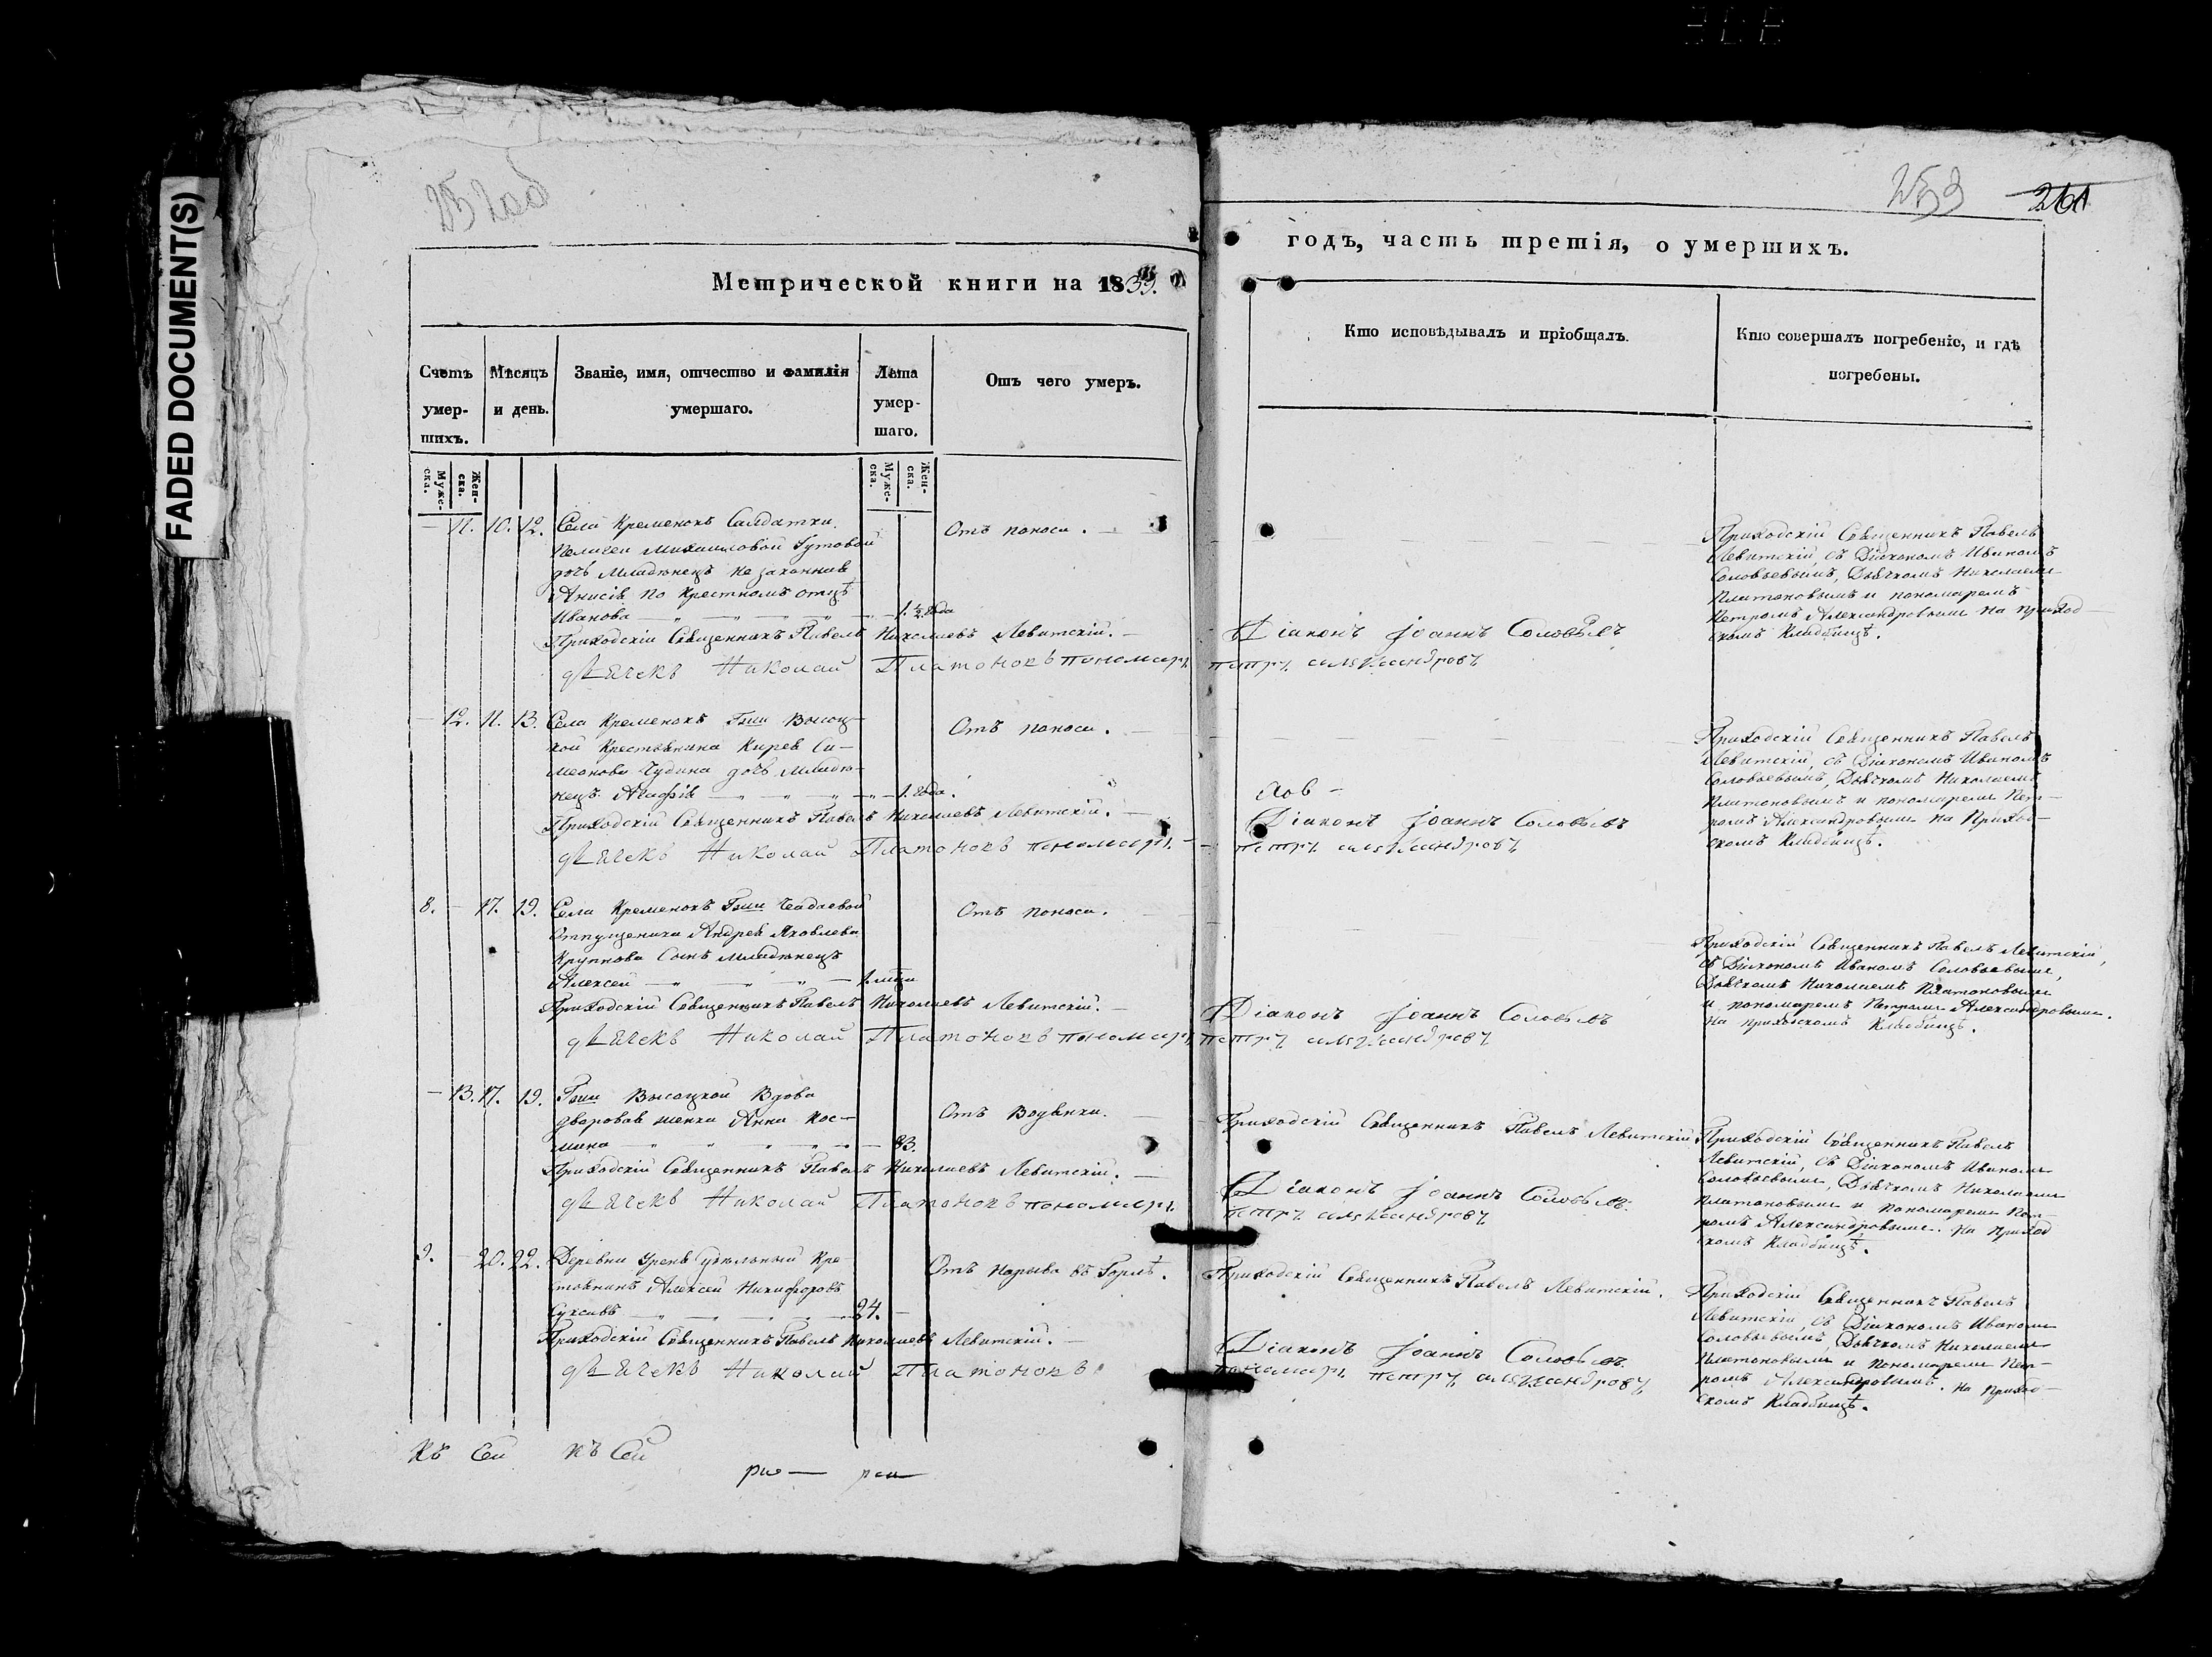 FADED DOCUMENT(S)
253
261
Метрической книги на 1833.
годъ, часть третія, о умершихъ.
Счетъ умер-шихъ.
Мѣсяцъ и день.
Званіе, имя, отчество и фамилія умершаго.
Лѣта умер-шаго.
Отъ чего умеръ.
Кто исповѣдывалъ и пріобщалъ.
Кто совершалъ погребеніе, и гдѣ погребены.
Муже-ска.
Жен-ска.
Муже-ска.
Жен-ска.
— 11. 10. 12. Села Кременокъ Салдатки
Пелагеи Михаиловой Гутовой
дочь Младенецъ не законная
Анисія по Крестномъ отцѣ
Иванова — 1 1/2 года
Отъ поноса.
Приходскій Священникъ Павелъ
Левитскій, съ Діакономъ Иваномъ
Соловьевымъ, Дьячкомъ Николаемъ
Платоновымъ и пономаремъ
Петромъ Александровымъ на приход-
скомъ Кладбищѣ.
Приходскій Священникъ Павелъ Николаевъ Левитскій.
Діаконъ Іоаннъ Соловьевъ
дьячекъ Николай Платоновъ пономарь петръ александровъ
— 12. 11. 13. Села Кременокъ Гжи Высоц-
кой Крестьянина Кирея Си-
меонова Чудина дочь Младе-
нецъ Агафія — 1. года.
Отъ поноса.
Приходскій Священникъ Павелъ
Левитскій, съ Діакономъ Иваномъ
Соловьевымъ, Дьячкомъ Николаемъ
Платоновымъ и пономаремъ Пет-
ромъ Александровымъ на Приход-
скомъ Кладбищѣ.
Приходскій Священникъ Павелъ Николаевъ Левитскій.
Діаконъ Іоаннъ Соловьевъ
дьячекъ Николай Платоновъ пономарь петръ александровъ
8. — 17. 19. Села Кременокъ Гжи Чадаевой
Отпущеника Андрея Яковлева
Крупнова Сынъ Младенецъ
Алексей —
Отъ поноса.
Приходскій Священникъ Павелъ Левитскій,
съ Діакономъ Иваномъ Соловьевымъ,
Дьячкомъ Николаемъ Платоновымъ
и пономаремъ Петромъ Александровымъ.
на приходскомъ Кладбищѣ.
Приходскій Священникъ Павелъ Николаевъ Левитскій.
Діаконъ Іоаннъ Соловьевъ
дьячекъ Николай Платоновъ пономарь петръ александровъ
— 13. 17. 19. Гжи Высоцкой Вдова
дворовая женка Анна Кос-
мина — 83.
Отъ Водянки.
Приходскій Священникъ Павелъ Левитскій
Приходскій Священникъ Павелъ
Левитскій, съ Діакономъ Иваномъ
Соловьевымъ, Дьячкомъ Николаемъ
Платоновымъ и пономаремъ Пет-
ромъ Александровымъ. на приход
скомъ Кладбищѣ.
Приходскій Священникъ Павелъ Николаевъ Левитскій.
Діаконъ Іоаннъ Соловьевъ.
дьячекъ Николай Платоновъ пономарь петръ александровъ
9. — 20. 22. Деревни Урень удѣльный Кре-
стьянинъ Алексей Никифоровъ
— 24. —
Отъ нарыва въ Горлѣ.
Приходскій Священникъ Павелъ Левитскій.
Приходскій Священникъ Павелъ
Левитскій, съ Діакономъ Иваномъ
Соловьевымъ, Дьячкомъ Николаемъ
Платоновымъ и пономаремъ Пет-
ромъ Александровымъ. на приход-
скомъ Кладбищѣ.
Приходскій Священникъ Павелъ Николаевъ Левитскій.
Діаконъ Іоаннъ Соловьевъ
дьячекъ Николай Платоновъ пономарь петръ александровъ
Къ Сей Къ Сей